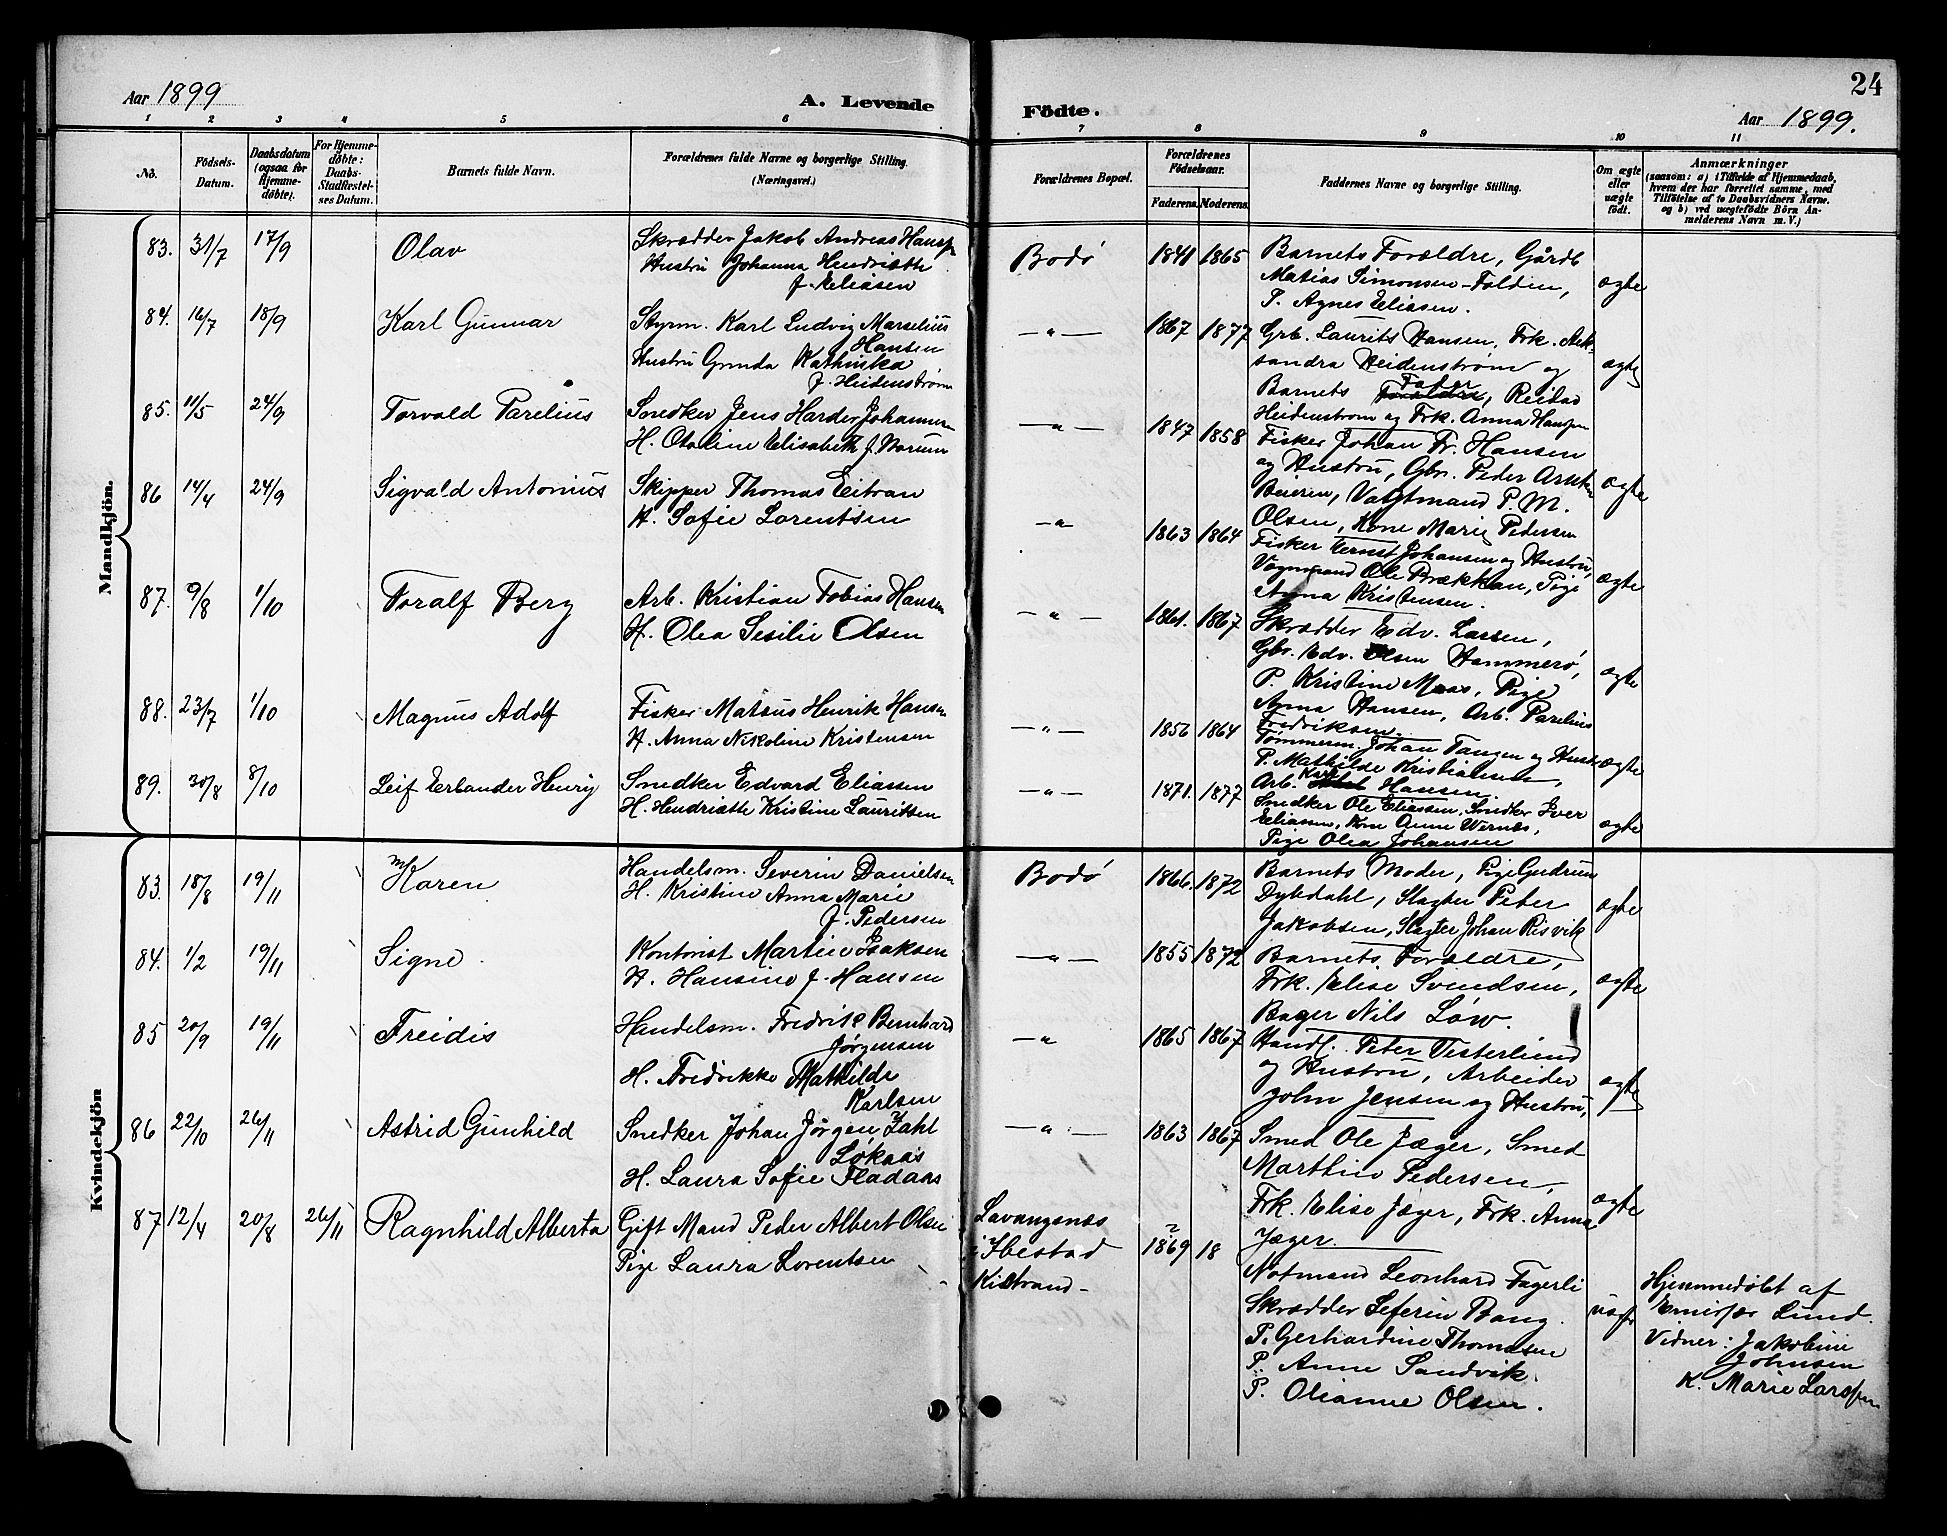 24
Aar 1899
A. Levende
Födte.
Aar 1899.
1 2 3 4 5 6 7 8 9 10 11
No.
Födsels-
Datum.
Daabsdatum
(ogsaa for
Hjemme-
döbte).
For Hjemme-
döbte:
Daabs-
Stadfæstel-
ses Datum.
Barnets fulde Navn.
Forældrenes fulde Navne og borgerlige Stilling.
(Næringsvei.)
Forældrenes Bopæl.
Forældrenes
Födselsaar.
Faderens. Moderens.
Faddernes Navne og borgerlige Stilling.
Om ægte
eller
uægte
födt.
Anmærkninger
(saasom: a) i Tilfælde af Hjemmedaab,
hvem der har forrettet samme, med
Tilföielse af to Daabsvidners Navne.
og b) ved uægtefödte Börn An-
melderens Navn m. V.)
Mandkjön.
83. 31/7 17/9 Olav
Skrædder Jakob Andreas Hanssen
Hustru Johanna Hendriette
f. Eliasen
Bodø 1841 1865
Barnets Forældre, Gårdb
Matias Simonsen-Folden,
P. Agnes Eliasen.
ægte
84. 16/7 18/9 Karl Gunnar
Styrm. Karl Ludvig Marselius
Hansen
Hustru Gunda Kathinka
f. Heidenstrøm
—"— 1867 1877
Grb. Laurits Hansen, Frk. Alek-
sandra Heidenstrøm og
Barnets Fader, Reidar
Heidenstrøm og Frk. Anna Hanssen
ægte
85. 11/5 24/9 Torvald Parelius
Snedker Jens Harder Johannesen
H. Otaline Elisabeth f. Norum
—"— 1847 1858
Fisker Johan Fr. Hansen
og Hustru, Gbr. Peder
Beieren, Valgtmand P. M.
Olsen, Kone Marie Pedersen
ægte
86 14/4 24/9 Sigvald Antonius
Skipper Thomas Eitran
H. Sofie Lorentsen
—"— 1863 1864
Fisker Ernst Johansen og Hustru,
Vognmand Ole Brækkan, Pige
Anna Kristensen.
ægte
87. 9/8 1/10 Toralf Berg
Arb. Kristian Tobias Hansen
H. Olea Sesilie Olsen
—"— 1861. 1867
Skrædder Edv. Larsen,
Gbr. Edv. Olsen Hammerø,
P. Kristine Moas, Pige
Anna Hansen, Arb. Parelius
Fredriksen.
ægte
88. 23/7 1/10 Magnus Adolf
Fisker Matæus Henrik Hansen
H. Anna Nikoline Kristensen
—"— 1856 1864
Tømmerm. Johan Tangen og Hustru
P. Mathilde Kristiansen,
Arb. Karl Hansen.
ægte
89. 30/8 8/10 Leif Erlander Henry
Snedker Edvard Eliassen
H. Hendriette Kristine Lauritsen
—"— 1871. 1877
Snedker Ole Eliassen, Snedker Iver
Eliassen, Kone Anne Wernæs,
Pige Olea Johansen
ægte
Kvindekjön
83. 18/8 19/11 Karen
Handelsm. Severin Danielsen
H. Kristine Anna Marie
f. Pedersen
Bodø 1866. 1872
Barnets Moder, Pige Gudrun
Dybdahl, Slagter Peter
Jakobsen, Slagter Johan Risvik
ægte
84. 1/2 19/11 Signe.
Kontorist Martin Isaksen
H. Hansine f. Hansen
—"— 1855 1872
Barnets Forældre,
Frk. Elise Svendsen,
Bager Nils Løw.
ægte
85 20/9 19/11 Freidis
Handelsm. Fredrik Bernhard
Jørgensen
H. Fredrikke Mathilde
Karlsen
" 1865 1867
Handl. Peter Vesterlund
og Hustru, Arbeider
John Jensen og Hustru,
ægte
86 22/10 26/11 Astrid Gunhild
Snedker Johan Jørgen Zahl
Løkaas
H. Laura Sofie Fladaas
—"— 1863 1867
Smed Ole Jæger, Smed
Marthin Pedersen,
Frk. Elise Jæger, Frk. Anna
Jæger.
ægte
87 12/4 20/8 26/11 Ragnhild Alberta
Gift Mand Peder Albert Olsen
Pige Laura Lorentsen
Lavangsnæs
i Ibestad
Kistrand-
1869 18
Notmand Leonhard Fagerli
Skrædder Seferin Bang.
P. Gerhardine Thomasen
P. Anne Sandvik.
P. Olianne Olsen.
uægte
Hjemmedøbt af
Lund.
Vidner: Jakobine
Johnsen
K. Marie Larssen